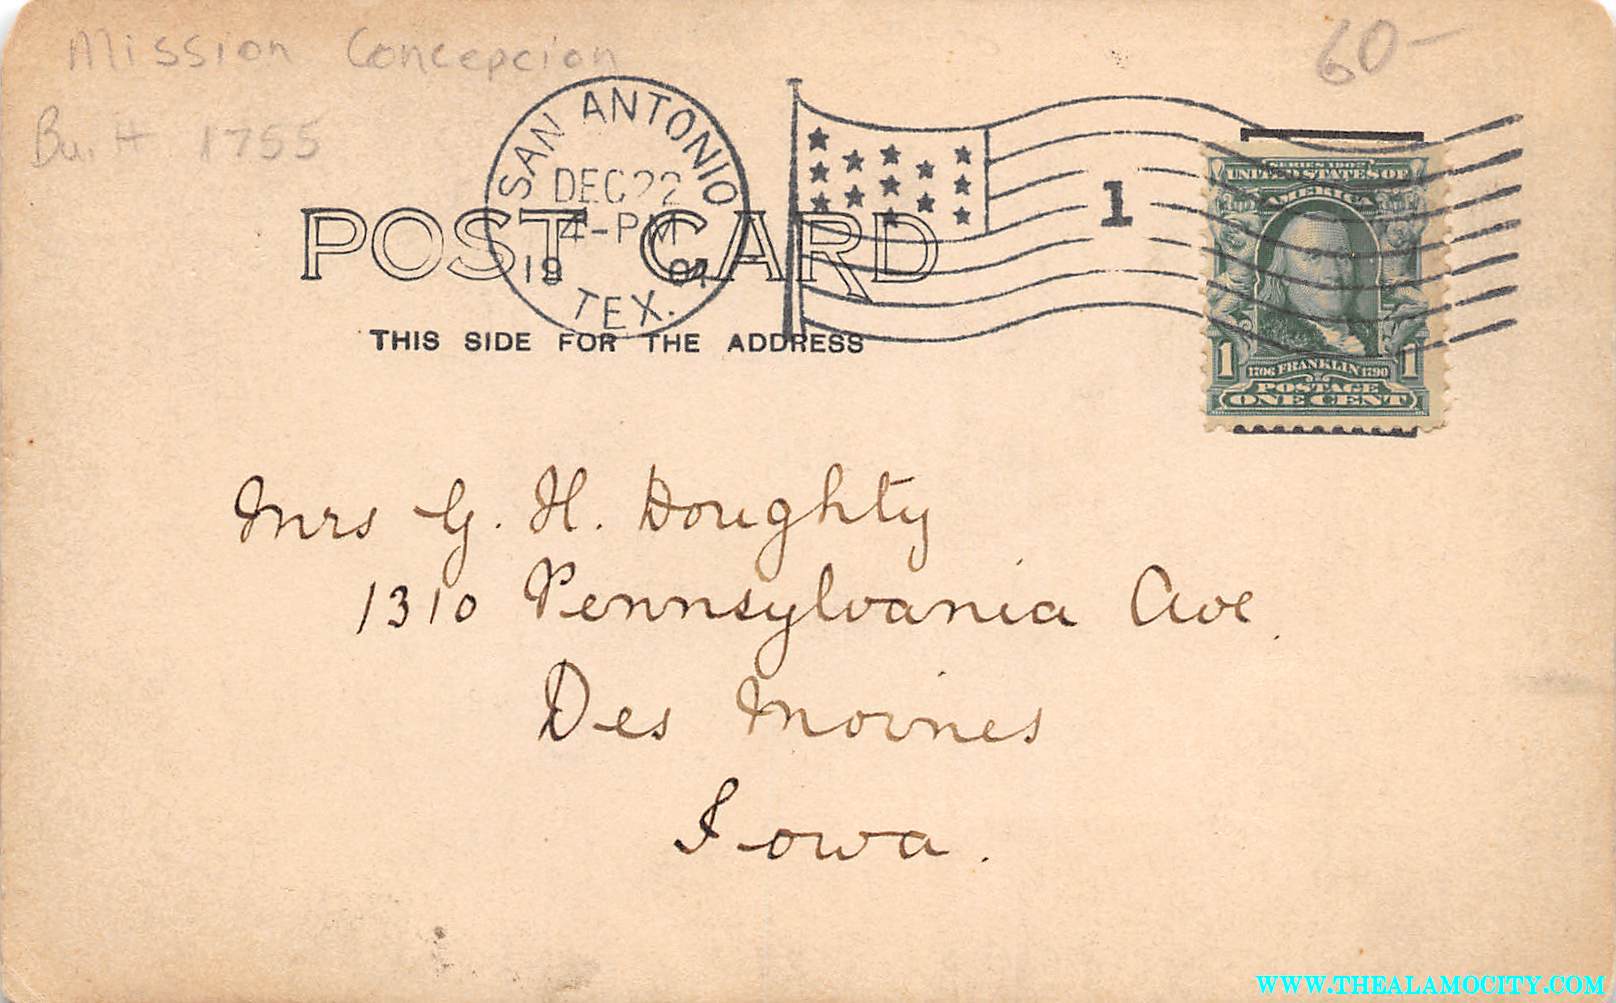 Mission Concepcion
60-
Built 1755
SAN ANTONIO
DEC 22
4-PM
19 07
TEX.
1
POST CARD
THIS SIDE FOR THE ADDRESS
SERIES 1902
UNITED STATES OF
AMERICA
1 1706 FRANKLIN 1790 1
POSTAGE
ONE CENT
Mrs G. H. Doughty
1310 Pennsylvania Ave.
Des Moines
Iowa.
WWW.THEALAMOCITY.COM